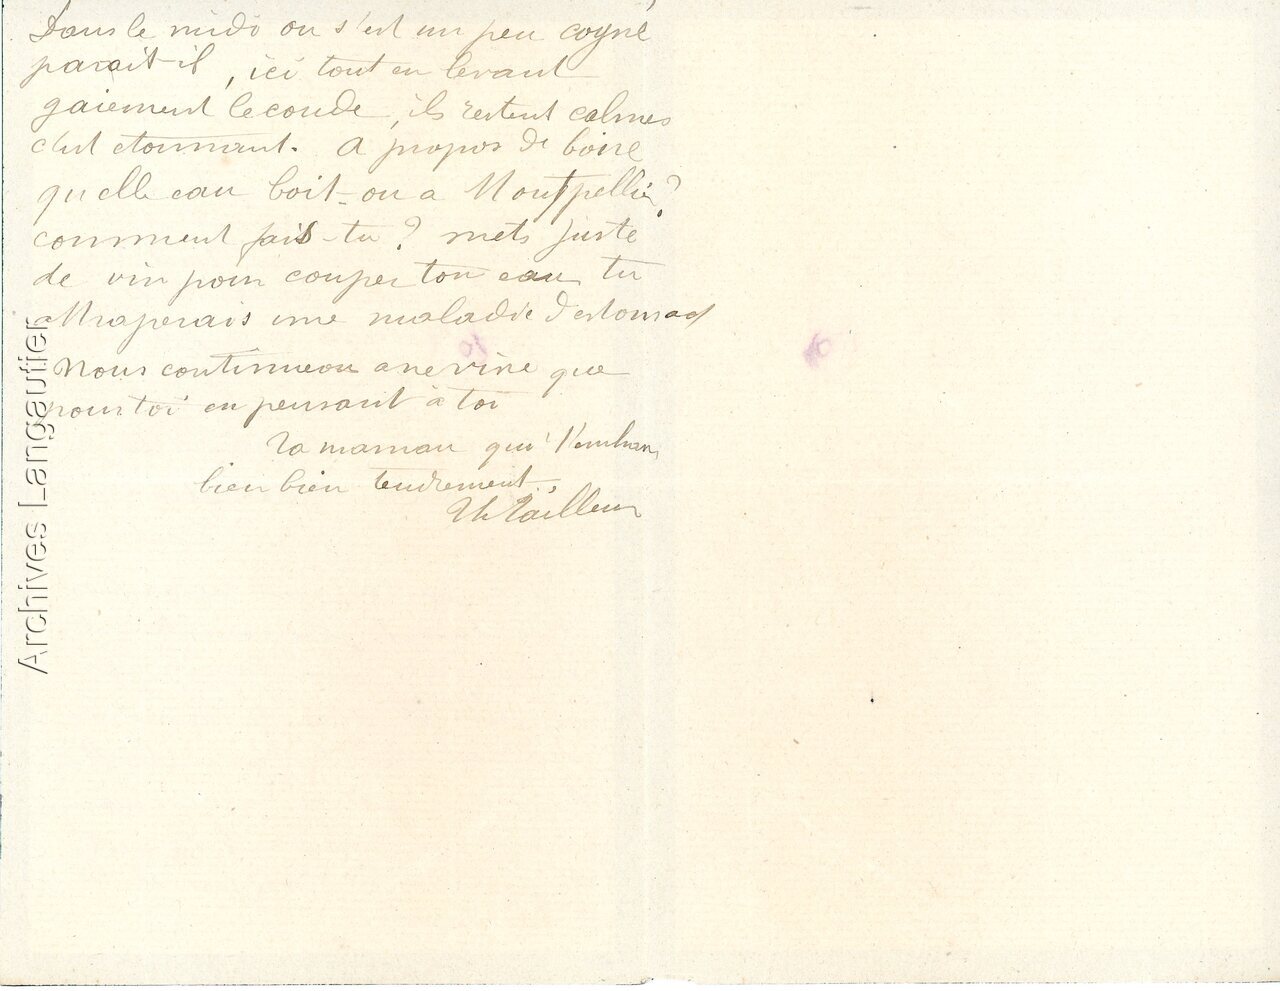 Dans le midi on s'est un peu cogné
parait-il, ici tout en levant
gaiement le coude, ils restent calmes
c'est etonnant. A propos de boire
quelle eau boit-on a Montpellier ?
comment fais-tu ? mets juste
de vin pour couper ton eau tu
attraperais une maladie d'estomac
Nous continueon a ne vivre que
pour toi en pensant à toi
Ta maman qui t'embrass
bien bien tendrement.
Archives Langautier